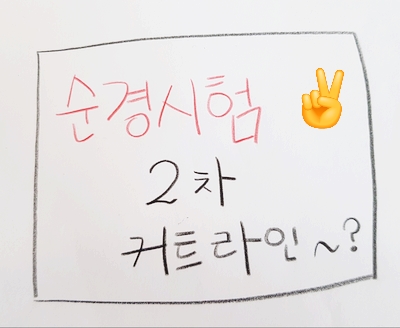 순경시험 ✌
2차
커트라인~?